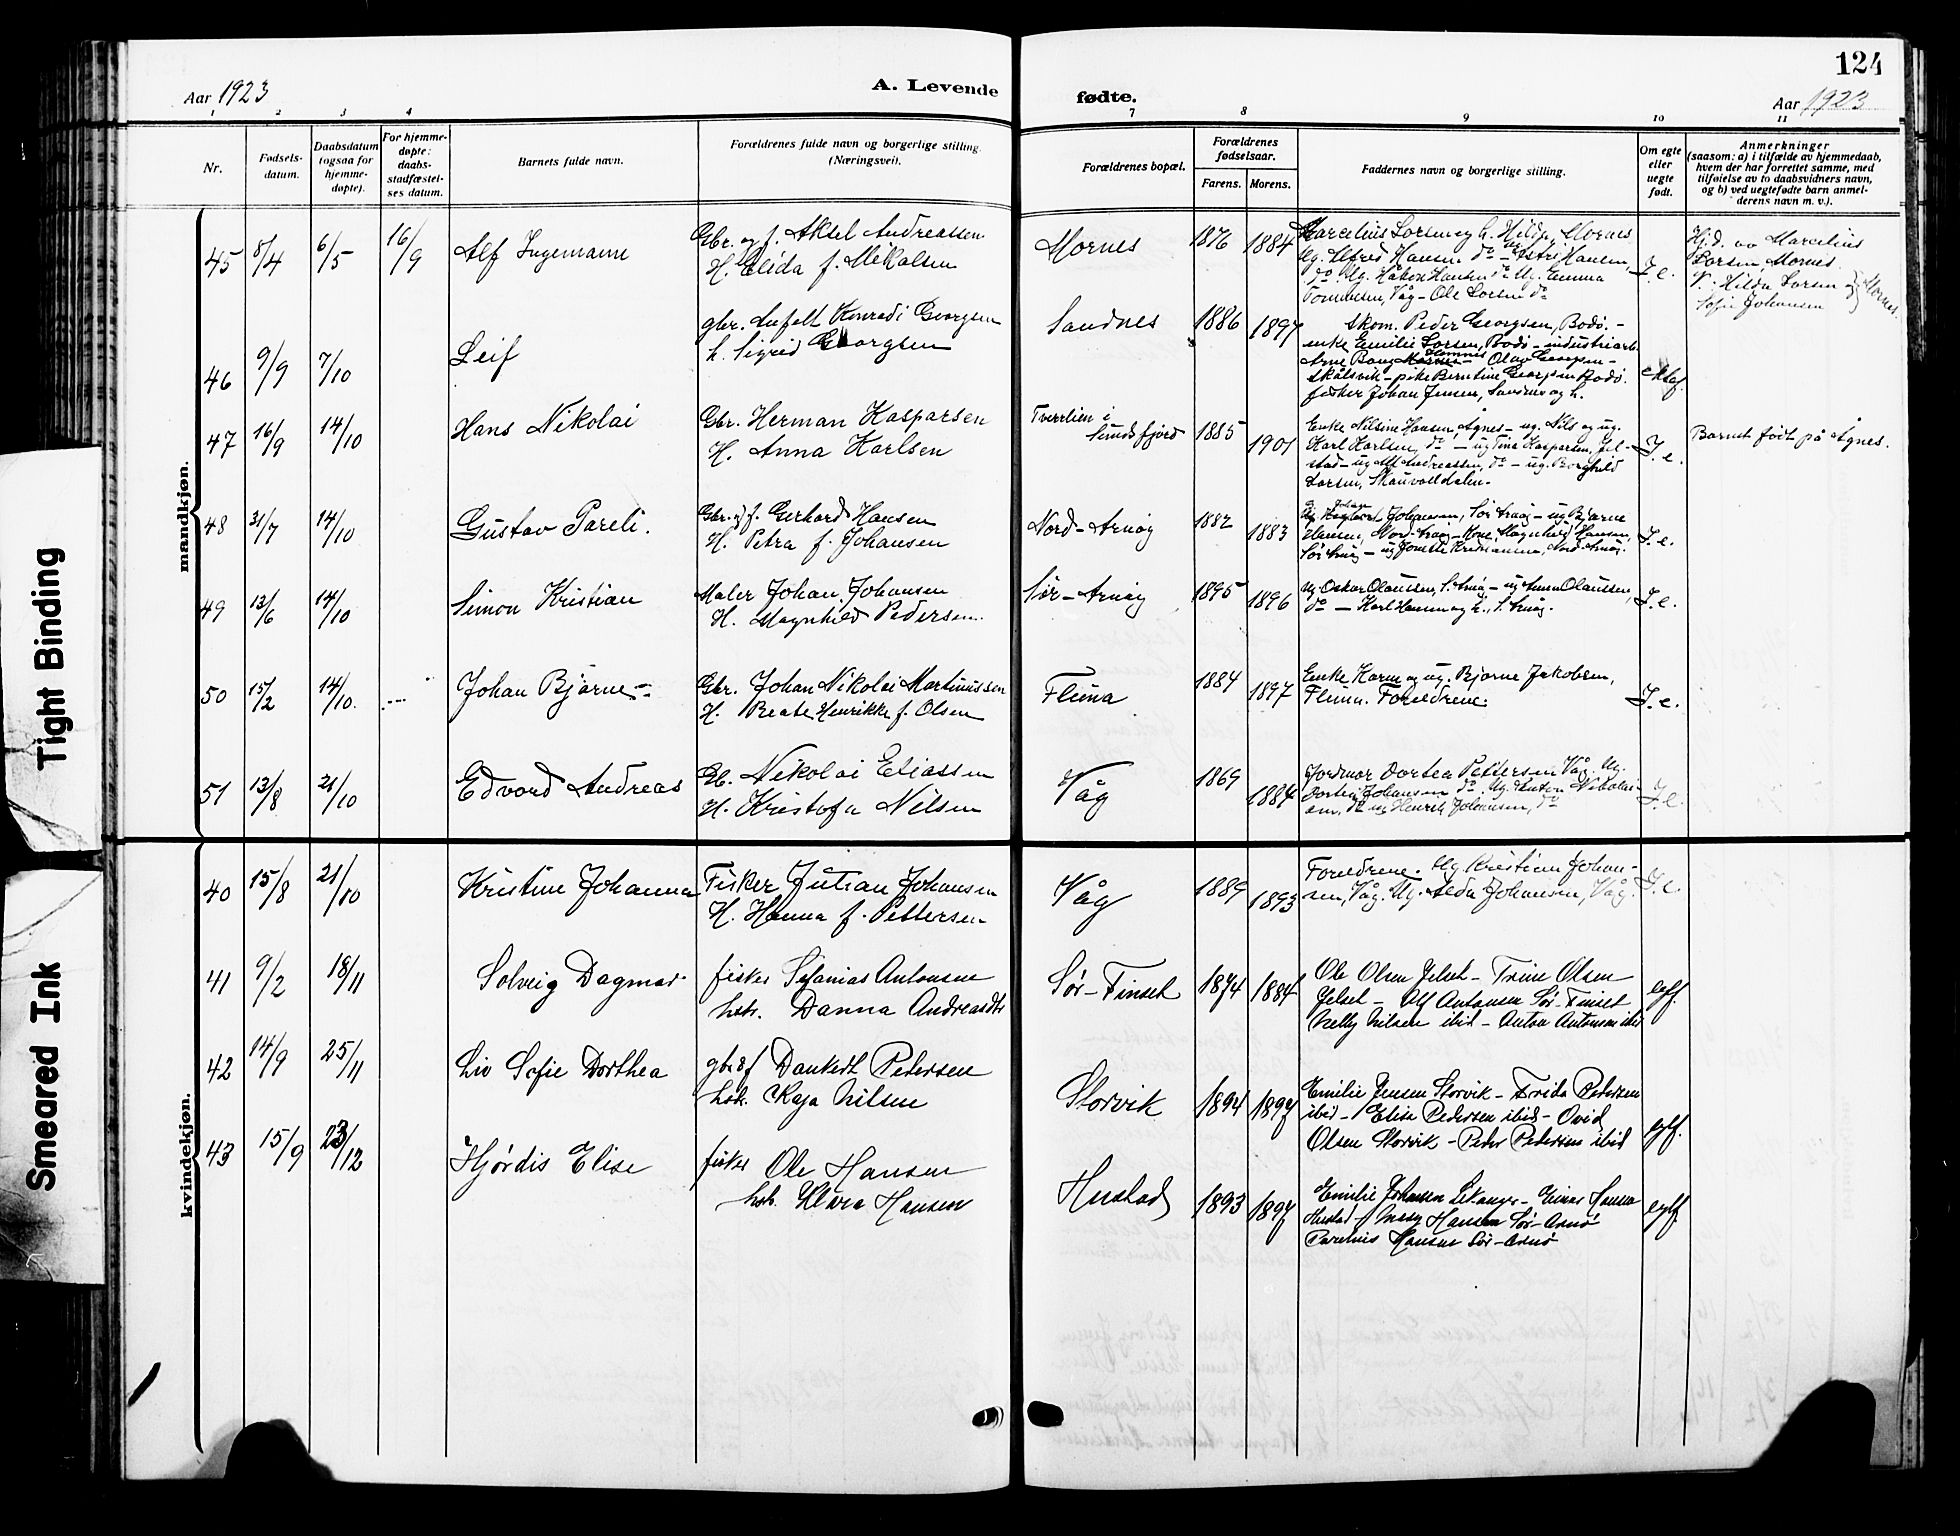 124
Aar 1923
A. Levende
fødte.
Aar 1923
1 2 3 4
7 8 9 10 11
Nr.
Fødsels-
datum.
Daabsdatum
(ogsaa for
hjemme-
døpte).
For hjemme-
døpte:
daabs-
stadfæstel-
ses datum.
Barnets fulde navn.
Forældrenes fulde navn og borgerlige stilling.
(Næringsvei).
Forældrenes bopæl.
Forældrenes
fødselsaar.
Farens. Morens.
Faddernes navn og borgerlige stilling.
Om egte
eller
uegte
født.
Anmerkninger
(saasom: a) i tilfælde av hjemmedaab,
hvem der har forrettet samme, med
tilføielse av to daabsvidners navn,
og b) ved uegtefødte barn anmel-
derens navn m. v.).
mandkjøn.
45 8/4 6/5 16/9 Alf Ingemann
Gbr. og f. Aksel Andreassen
H. Elida f. Mikalsen
Mornes 1876 1884
Marcelius Larsen og h. Hilda, Mornes
Ug. Alfred Hansen do - Ug. Astri Hansen,
do. Ug. Håkon Hansen do Ug. Emma
Tommesen, Våg - Ole Larsen do
I. e.
Hj.d. av Marcelius
Larsen, Mornes.
V.: Hilda Larsen og
Sofie Johansen } Mornes.
46 9/9 7/10 Leif
gbr. Konradi Georgsen
h. Sigrid Georgsen
Sandnes 1886 1897
Skom. Peder Georgsen, Bodø. -
enke Emilie Larsen, Bodø - industriarb.
Arne Bang - Olav Georgsen -
Skålsvik - pike Berntine Georgsen Bodø.
fisker Johan Jensen, Sandnes og h.
47 16/9 14/10 Hans Nikolai
Gbr. Herman Kasparsen
H. Anna Karlsen
Tverrlien i
1885 1901
Enke Nilsine Hansen, Ågnes - ug. Nils og ug.
Karl Karlsen, do - ug Tina Kaspersen, Jel-
stad - ug Alf Andreassen, do - ug. Borghild
Larsen, Skauvolldalen.
I. e.
Barnet født på Ågnes.
48 31/7 14/10 Gustav Pareli.
Gbr. og f. Gerhard Hansen
H. Petra f. Johansen
Nord-Arnøy 1882 1883
Johansen, Sør Arnøy - ug Bjarne
Hansen, Nord-Arnøy - Kone, Magnhild Hansen,
Sør Arnøy - ug Nord-Arnøy.
I. e.
49 13/6 14/10 Simon Kristian
Maler Johan Johansen
H. Magnhild Pedersen.
Sør-Arnøy 1895 1896
Ug. Oskar Olaussen, S. Arnøy - ug Anna Olaussen
do - Karl Hansen og h., S. Arnøy.
I. e.
50 15/2 14/10. Johan Bjarne
Gbr. Johan Nikolai Martinussen
H. Beate Henrikke f. Olsen
Fleina 1884 1897
Enke Karen og ug. Bjarne Jakobsen,
Fleina. Foreldrene.
I. e.
51 13/8 21/10 Edvard Andreas
Gb. Nikolai Eliassen
H. Kristofa Nilsen
Våg 1869 1884
Jordmor Dortea Pettersen Våg. Ug.
Dortea Johansen do. Ug. Anton Nikolai-
sen, do ug Henrik Johansen, do
I. e.
kvindekjøn.
40 15/8 21/10 Kristine Johanna
Fisker Julian Johansen
H. Hanna f. Pettersen
Våg 1889 1893
Foreldrene. Ug Kristian Johan-
sen, Våg. Ug. Alda Johansen, Våg.
I. e.
41 9/2 18/11 Solveig Dagmar
fisker Sefanias Antonsen
hstr. Danna Andreasdtr
Sør-Finset 1874 1884
Ole Olsen Jelset - Trine Olsen
Jelset - Alf Antonsen Sør-Finset
Nelly Nilsen ibid - Anton Antonsen ibid
egtf.
42 14/9 25/11 Liv Sofie Dorthea
gbr & f Dankert Pedersen
hstr. Kaja Nilsen
Storvik 1894 1897
Emilie Jensen Storvik - Frida Pedersen
ibid - Elise Pedersen ibid - Ovid
Olsen Storvik - Peder Pedersen ibid
egtf.
43 15/9 23/12 Hjørdis Elise
fisker Ole Hansen
hstr. Klara Hansen
Hustad 1893 1897
Emilie Johansen Lekanger - Einar Hansen
Hustad - Hansen Sør-Arnø
Parelius Hansen Sør-Arnø
egtf.
Tight Binding
Smeared Ink